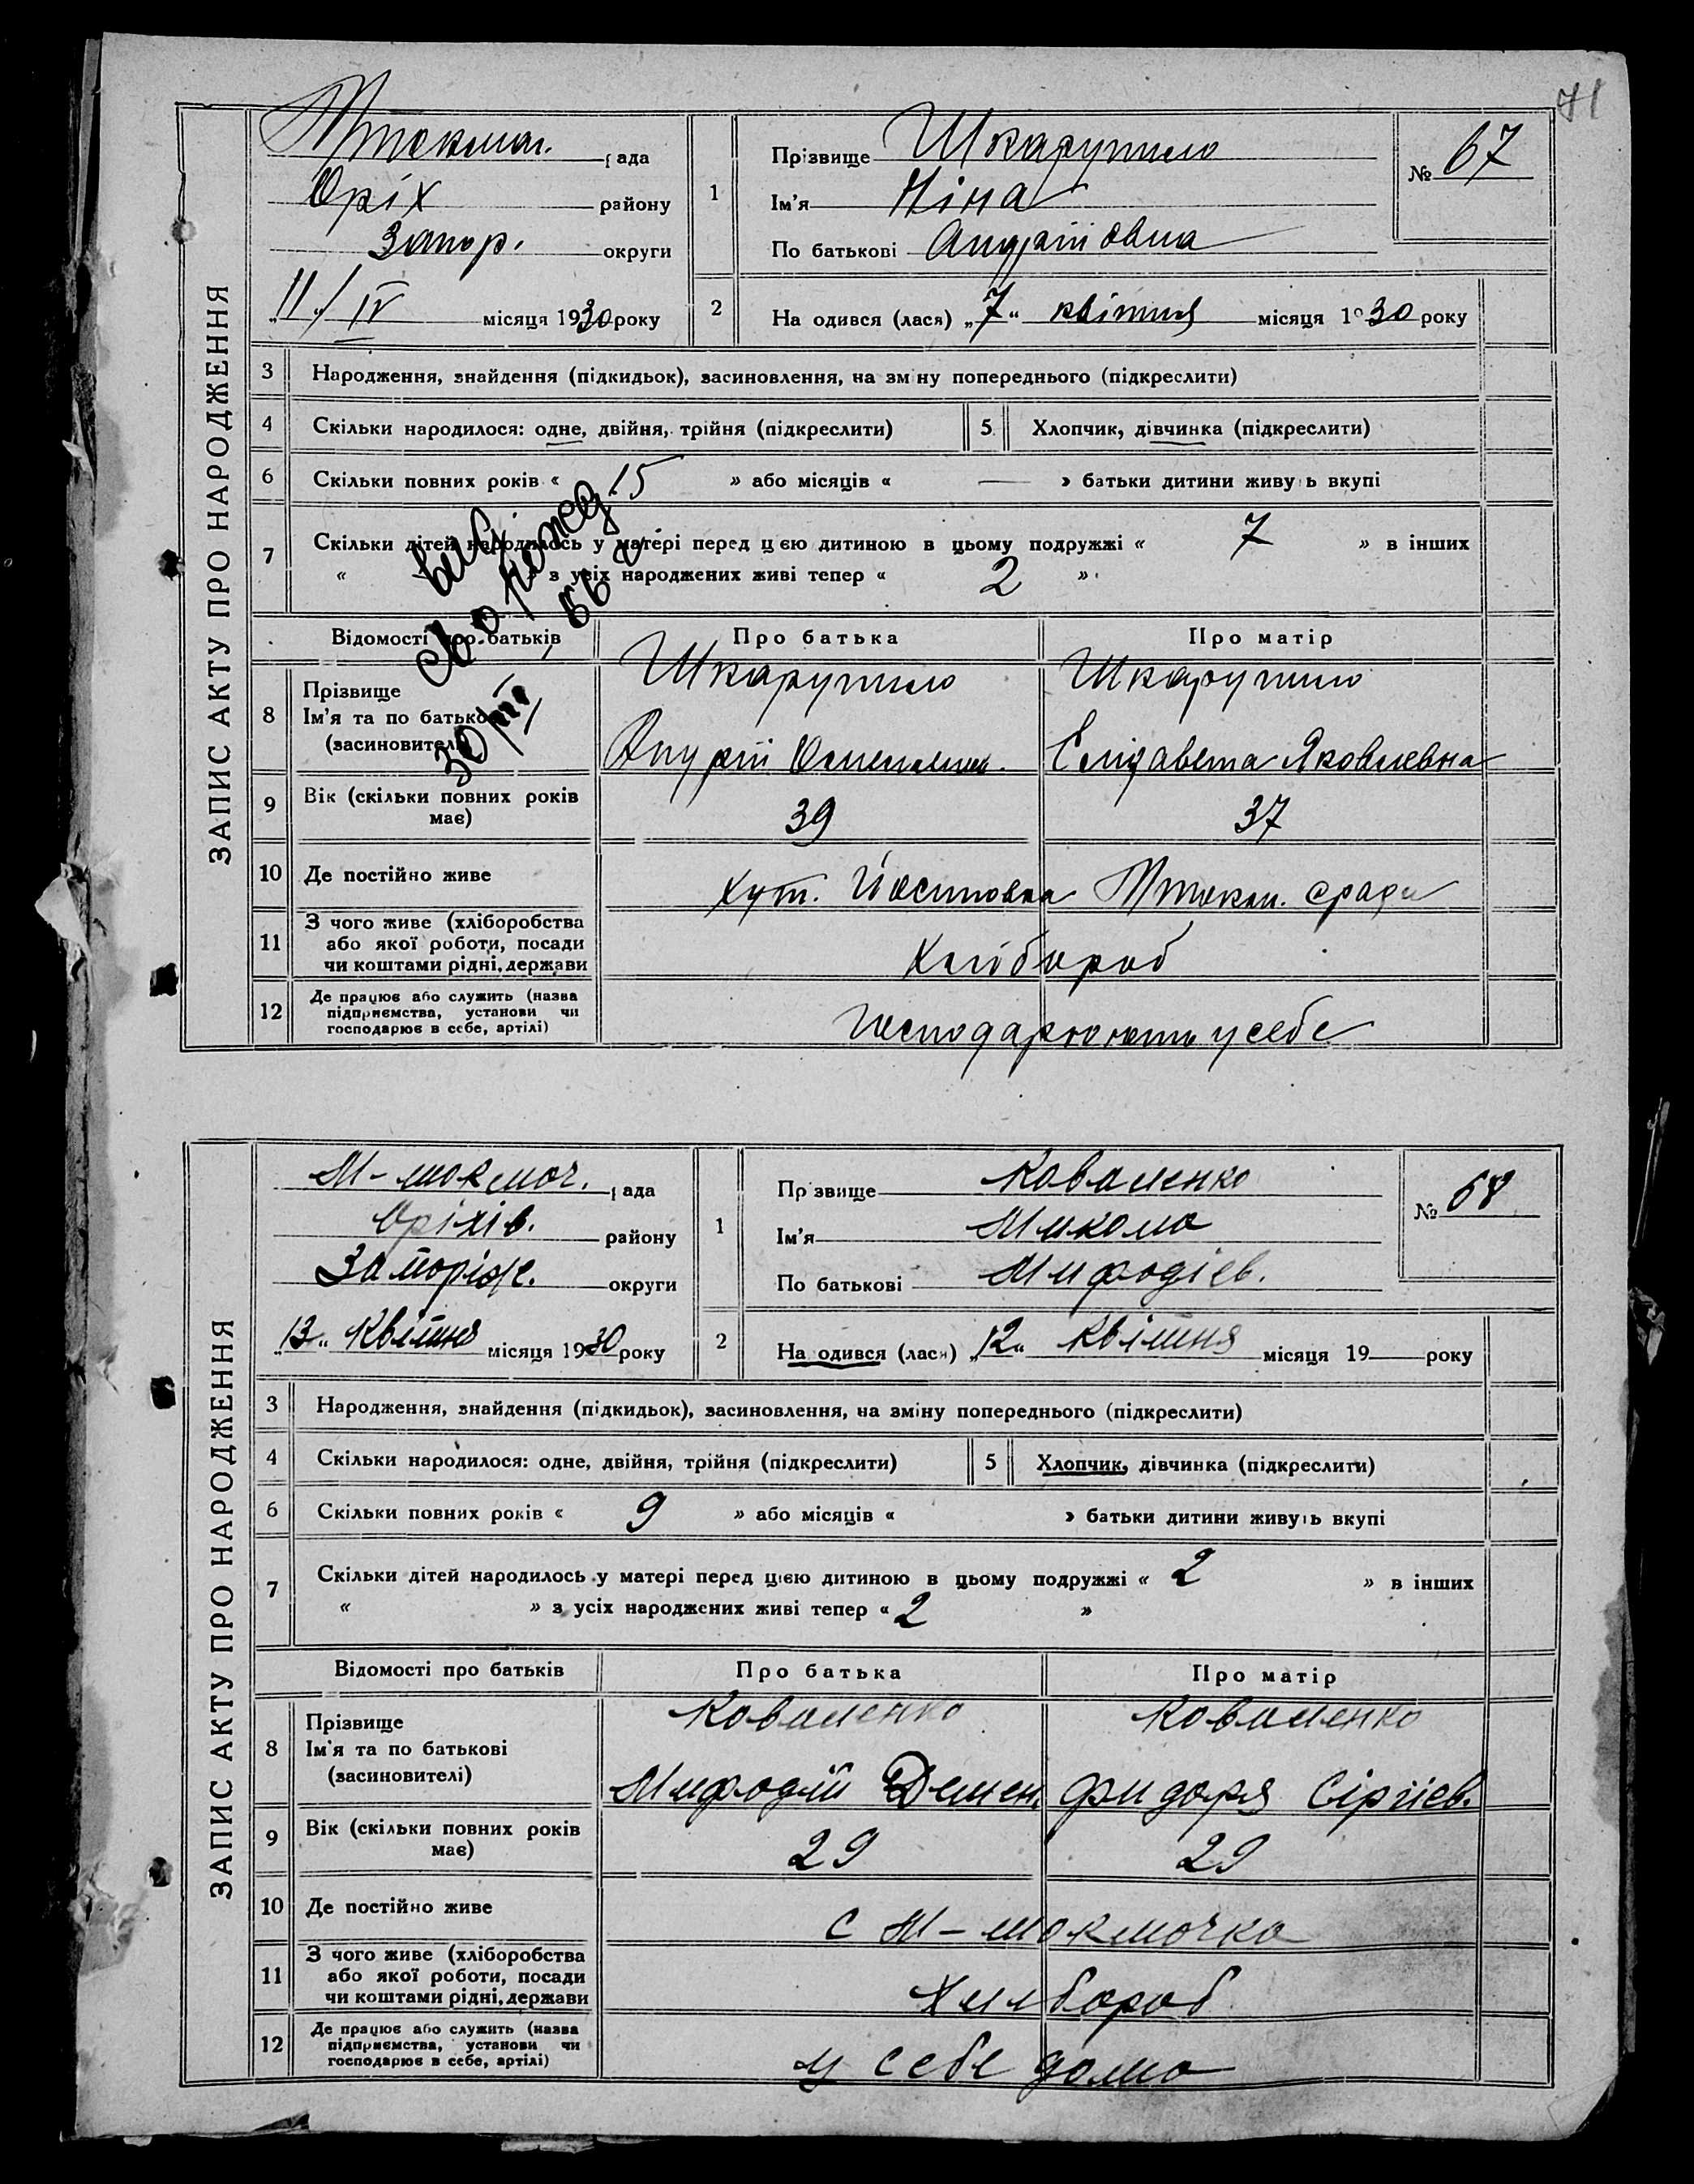 71
ЗАПИС АКТУ ПРО НАРОДЖЕННЯ
Мтокмач. рада
Оріх району
Запор. округи
„11“ IV місяця 1930 року
1
Прізвище Шкарупило
Ім'я Ніна
По батькові Андріївна
№ 67
2 На одився (лася) „7“ квітня місяця 1930 року
3 Народження, знайдення (підкидьок), засиновлення, на зміну попереднього (підкреслити)
4 Скільки народилося: одне, двійня, трійня (підкреслити) 5 Хлопчик, дівчинка (підкреслити)
6 Скільки повних років « 15 » або місяців « — » батьки дитини живуть вкупі
7 Скільки дітей народилось у матері перед цією дитиною в цьому подружжі « 7 » в інших
« » з усіх народжених живі тепер « 2 »
вид
св о рожд
56 г
30/III
Відомості про батьків Про батька Про матір
8 Прізвище
Ім'я та по батькові
(засиновителі)
Шкарупило Шкарупило
Андрій Єлізавета Яковлевна
9 Вік (скільки повних років має) 39 37
10 Де постійно живе хут. Йосиповка Мтокм. сради
11 З чого живе (хліборобства
або якої роботи, посади
чи коштами рідні, держави
Хлібороб
12 Де працює або служить (назва
підприємства, установи чи
господарює в себе, артілі)
Господарюють у себе
ЗАПИС АКТУ ПРО НАРОДЖЕННЯ
М-токмач. рада
Оріхів. району
Запоріж. округи
„13“ Квітня місяця 1930 року
1
Прізвище Коваленко
Ім'я Микола
По батькові Мифодіев.
№ 68
2 На одився (лася) „12“ Квітня місяця 19 року
3 Народження, знайдення (підкидьок), засиновлення, на зміну попереднього (підкреслити)
4 Скільки народилося: одне, двійня, трійня (підкреслити) 5 Хлопчик, дівчинка (підкреслити)
6 Скільки повних років « 9 » або місяців « » батьки дитини живуть вкупі
7 Скільки дітей народилось у матері перед цією дитиною в цьому подружжі « 2 » в інших
« » з усіх народжених живі тепер « 2 »
Відомості про батьків Про батька Про матір
8 Прізвище
Ім'я та по батькові
(засиновителі)
Коваленко Коваленко
Мифодій Демен. Фидоря Сіргіев.
9 Вік (скільки повних років має) 29 29
10 Де постійно живе с М-токмачка
11 З чого живе (хліборобства
або якої роботи, посади
чи коштами рідні, держави
Хлібороб
12 Де працює або служить (назва
підприємства, установи чи
господарює в себе, артілі)
у себе дома